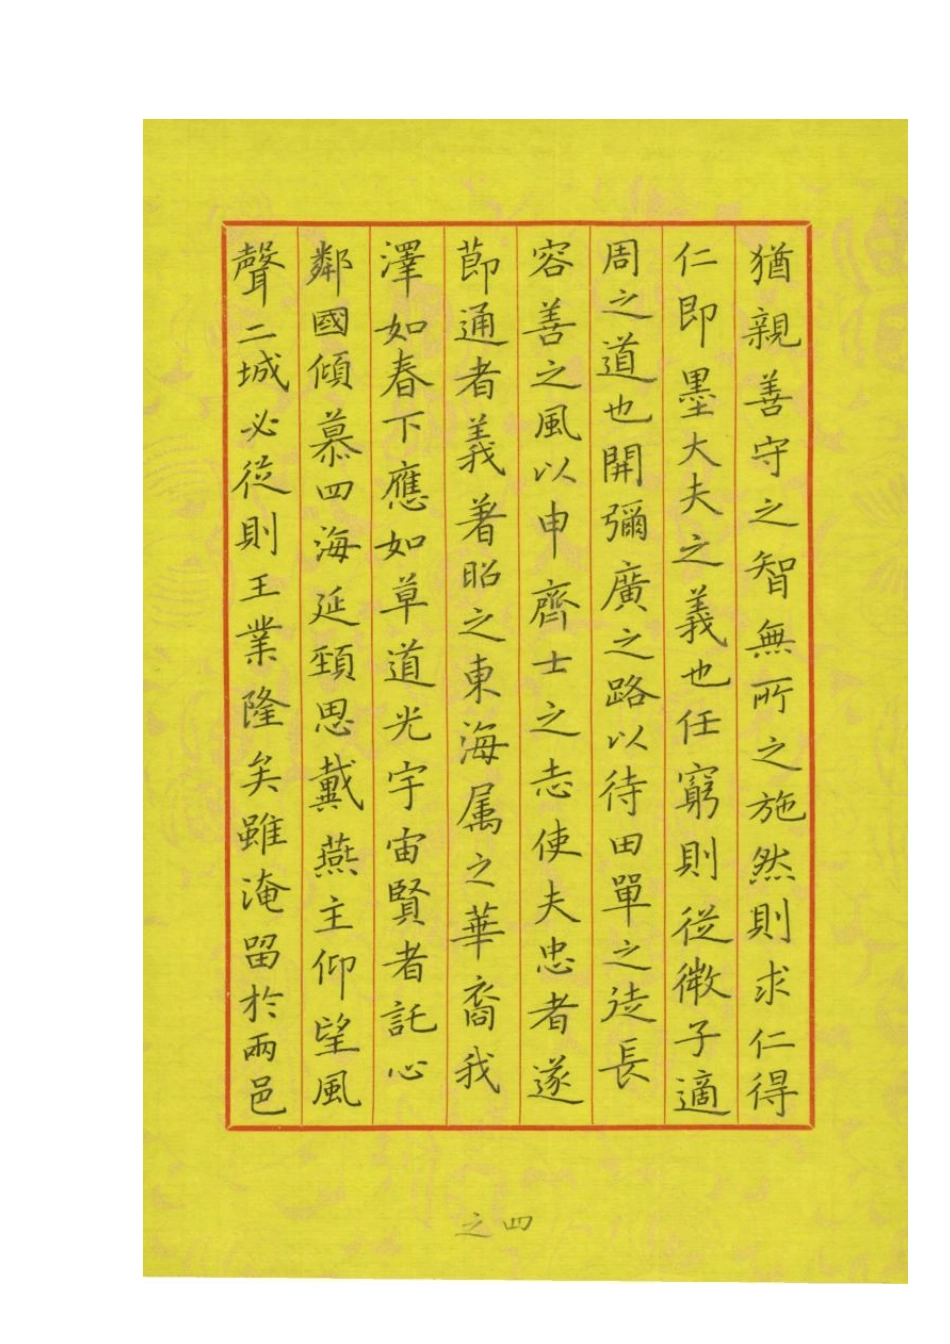 猶親善守之智無所之施然則求仁得
仁即墨大夫之義也任窮則從微子適
周之道也開彌廣之路以待田單之徒長
容善之風以申齊士之志使夫忠者遂
節通者義著昭之東海属之華裔我
澤如春下應如草道光宇宙賢者託心
鄰國傾慕四海延頸思戴燕主仰望風
聲二城必從則王業隆矣雖淹留於兩邑
之四